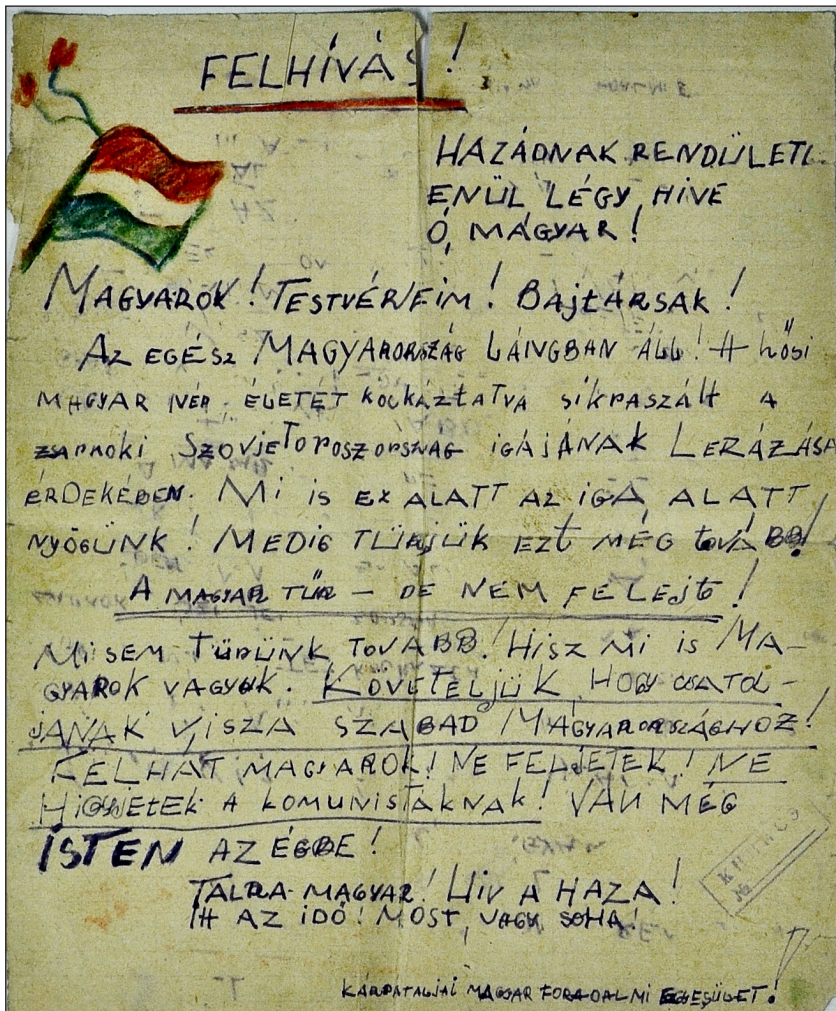 FELHÍVÁS!
HAZÁDNAK RENDÜLETL
ENÜL LÉGY HIVE
Ó, MAGYAR!
MAGYAROK! TESTVÉREIM! BAJTÁRSAK!
AZ EGÉSZ MAGYARORSZÁG LÁNGBAN ÁLL! A HŐSI
MAGYAR NÉP ÉLETÉT KOCKÁZTATVA SIKRASZÁLT A
ZSARNOKI SZOVJETOROSZORSZAG IGÁJÁNAK LERÁZÁSA
ÉRDEKÉBEN. MI IS EX ALATT AZ IGA ALATT
NYÖGÜNK! MEDIG TÜRJÜK EZT MÉG TOVÁBB!
A MAGYAR TŰR – DE NEM FELEJT!
MI SEM TÜRÜNK TOVÁBB! HISZ MI IS MA–
GYAROK VAGYUK. KÖVETELJÜK, HOGY CSATOL–
JANAK VISZA SZABAD MAGYARORSZÁGHOZ!
FELHÁT MAGYAROK! NE FELJETEK! NE
HIGYJETEK A KOMUNISTÁKNAK! VAN MÉG
ISTEN AZ ÉGBE!
TALRA MAGYAR! HIV A HAZA!
ITT AZ IDŐ! MOST, VAGY SOHA!
KÁRPATALJAI MAGYAR FORADALMI EGYESÜLET!